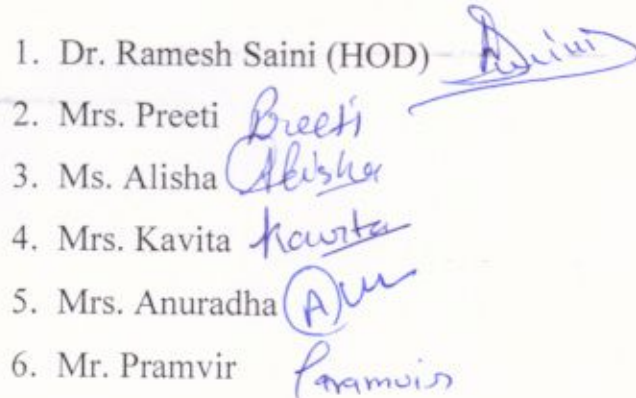 1. Dr. Ramesh Saini (HOD) Saini
2. Mrs. Preeti Preeti
3. Ms. Alisha Alisha
4. Mrs. Kavita Kavita
5. Mrs. Anuradha A
6. Mr. Pramvir Paramvir